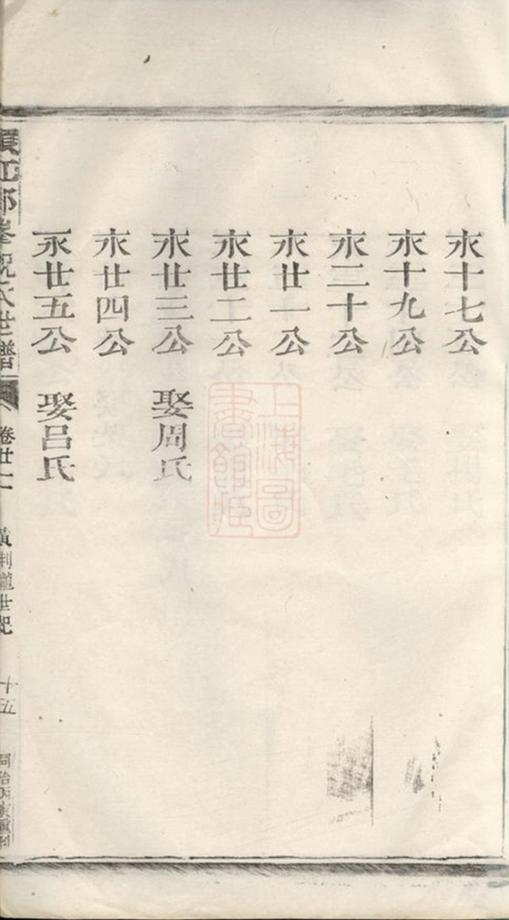 永十七公
永十九公
永二十公
永廿一公
永廿二公
永廿三公 娶周氏
永廿四公
永廿五公 娶呂氏
氏世譜
卷廿二
世紀
十五
上海圖書館藏